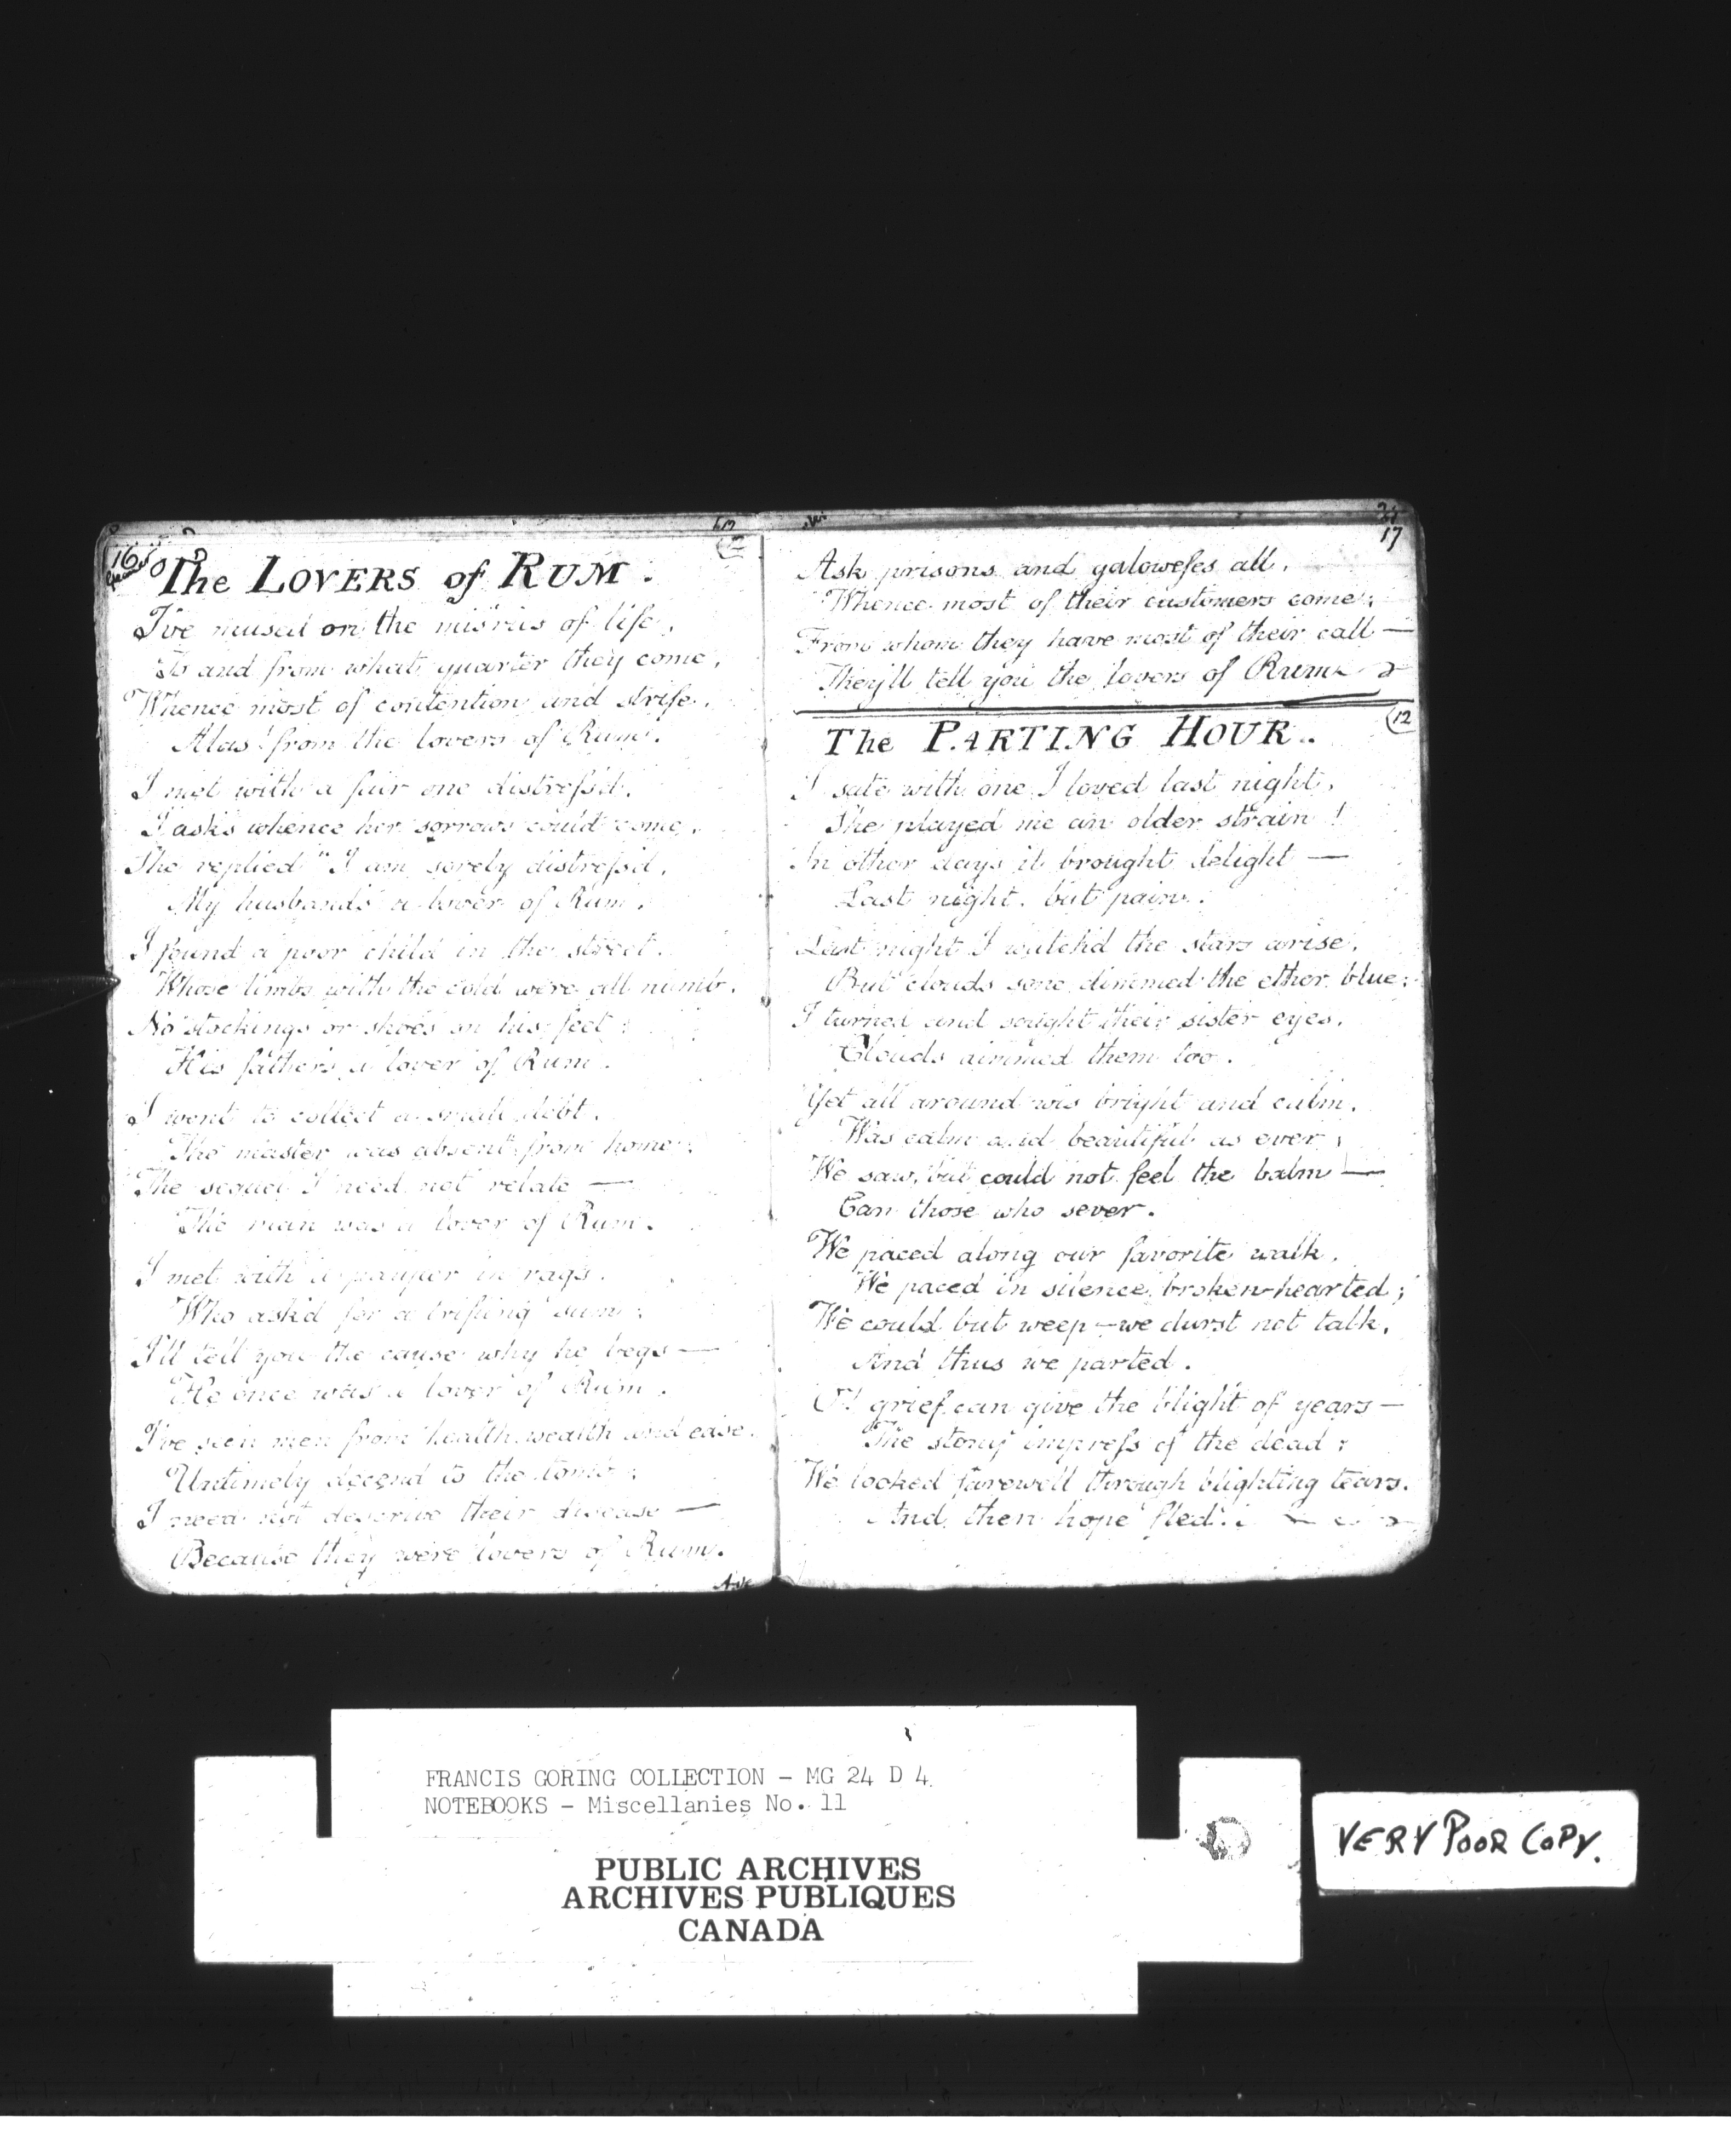 16
The LOVERS of RUM.
I've mused on the mis'ries of life,
To and from what quarter they come,
Whence most of contention and strife.
Alas! from the lovers of Rum.
I met with a fair one distreſs'd,
I asks whence her sorrows could come,
She replied "I am sorely distreſs'd,
My husband's a lover of Rum.
I found a poor child in the street.
Whose limbs with the cold were all numb,
No stockings or shoes on his feet:
His father's a lover of Rum.
I went to collect a small debt,
The master was absent from home:
The sequel I need not relate —
The man was a lover of Rum.
I met with a pauper in rags.
Who ask'd for a trifling sum;
I'll tell you the cause why he begs —
He once was a lover of Rum.
I've seen men from health wealth and ease.
Untimely decend to the tomb;
I need not describe their disease —
Because they were lovers of Rum.
Ask
17
Ask prisons and galoweſes all,
Whence most of their customers come;
From whom they have most of their call —
They'll tell you the lovers of Rum
12
The PARTING HOUR.
I sate with one I loved last night,
She played me an older strain!
In other days it brought delight —
Last night, but pain.
Last night I watch'd the stars arise,
But clouds sone dimmed the ether blue;
I turned and sought their sister eyes,
Clouds dimmed them too.
Yet all around was bright and calm,
Was calm and beautiful as ever;
We saw, but could not feel the balm —
Can those who sever.
We paced along our favorite walk,
We paced in silence broken-hearted;
We could but weep — we durst not talk,
And thus we parted.
O! grief can give the blight of years —
The stony impreſs of the dead;
We looked farewell through blighting tears.
And then hope fled.
FRANCIS GORING COLLECTION - MG 24 D 4
NOTEBOOKS - Miscellanies No. 11
PUBLIC ARCHIVES
ARCHIVES PUBLIQUES
CANADA
VERY POOR COPY.